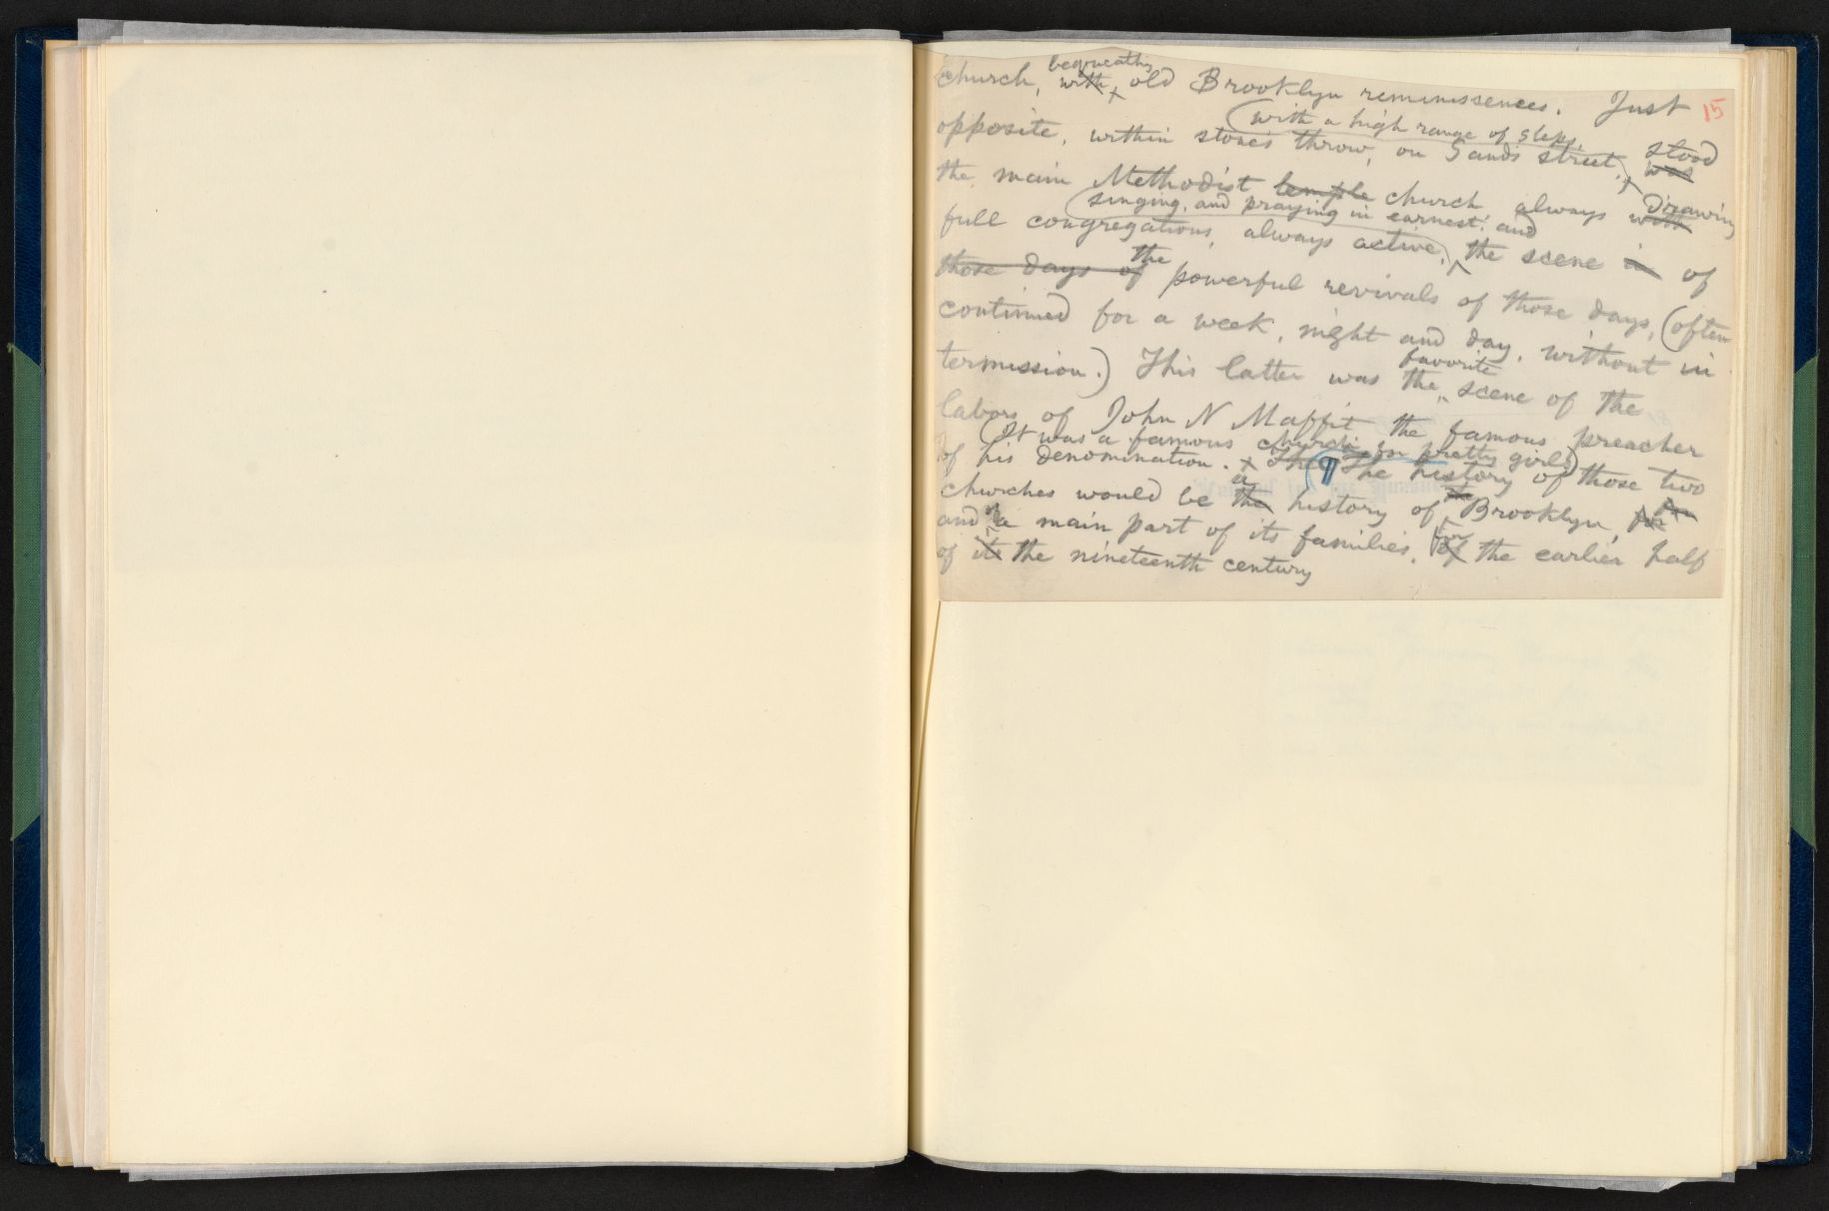 bequeaths
church, with old Brooklyn reminissences. Just 15
(with a high range of steps,
opposite, within stone's throw, on Sands street,) stood
was
the main Methodist temple church always with drawing
(singing, and praying in earnest: and
full congregations, always active,) the scene in of
those days of the powerful revivals of those days, (often
continued for a week, night and day, without in
termission.) This latter was the favorite scene of the
labors of John N Maffit the famous preacher
(It was a famous church for pretty girls)
of his denomination. The ¶ The history of those two
churches would be the a history of the Brooklyn, for
and of a main part of its families, of for the earlier half
of its the nineteenth century